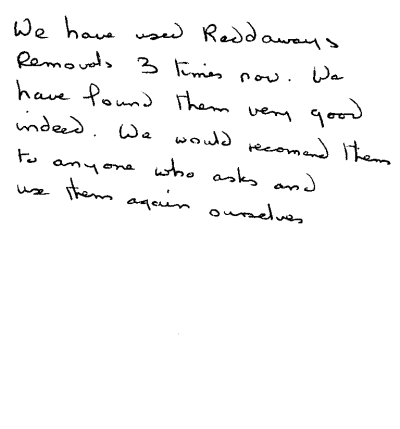 We have used Reddaways
Removals 3 times now. We
have found them very good
indeed. We would recomend them
to anyone who asks and
use them again ourselves